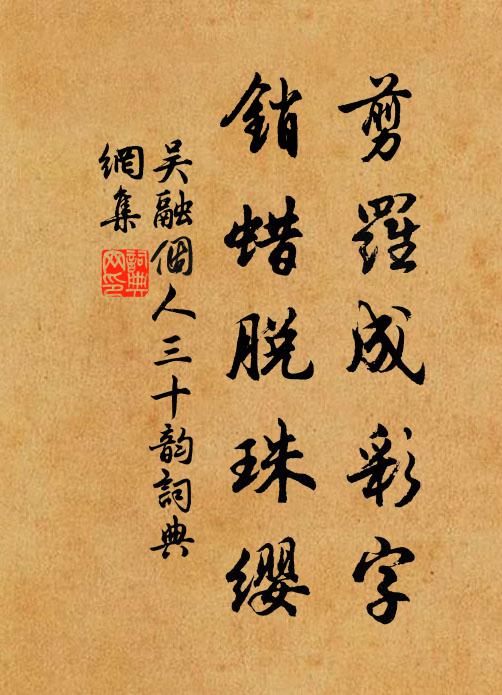 剪羅成彩字
銷蜡脱珠纓
吴融個人三十韵詞典
網集
詞典
网印